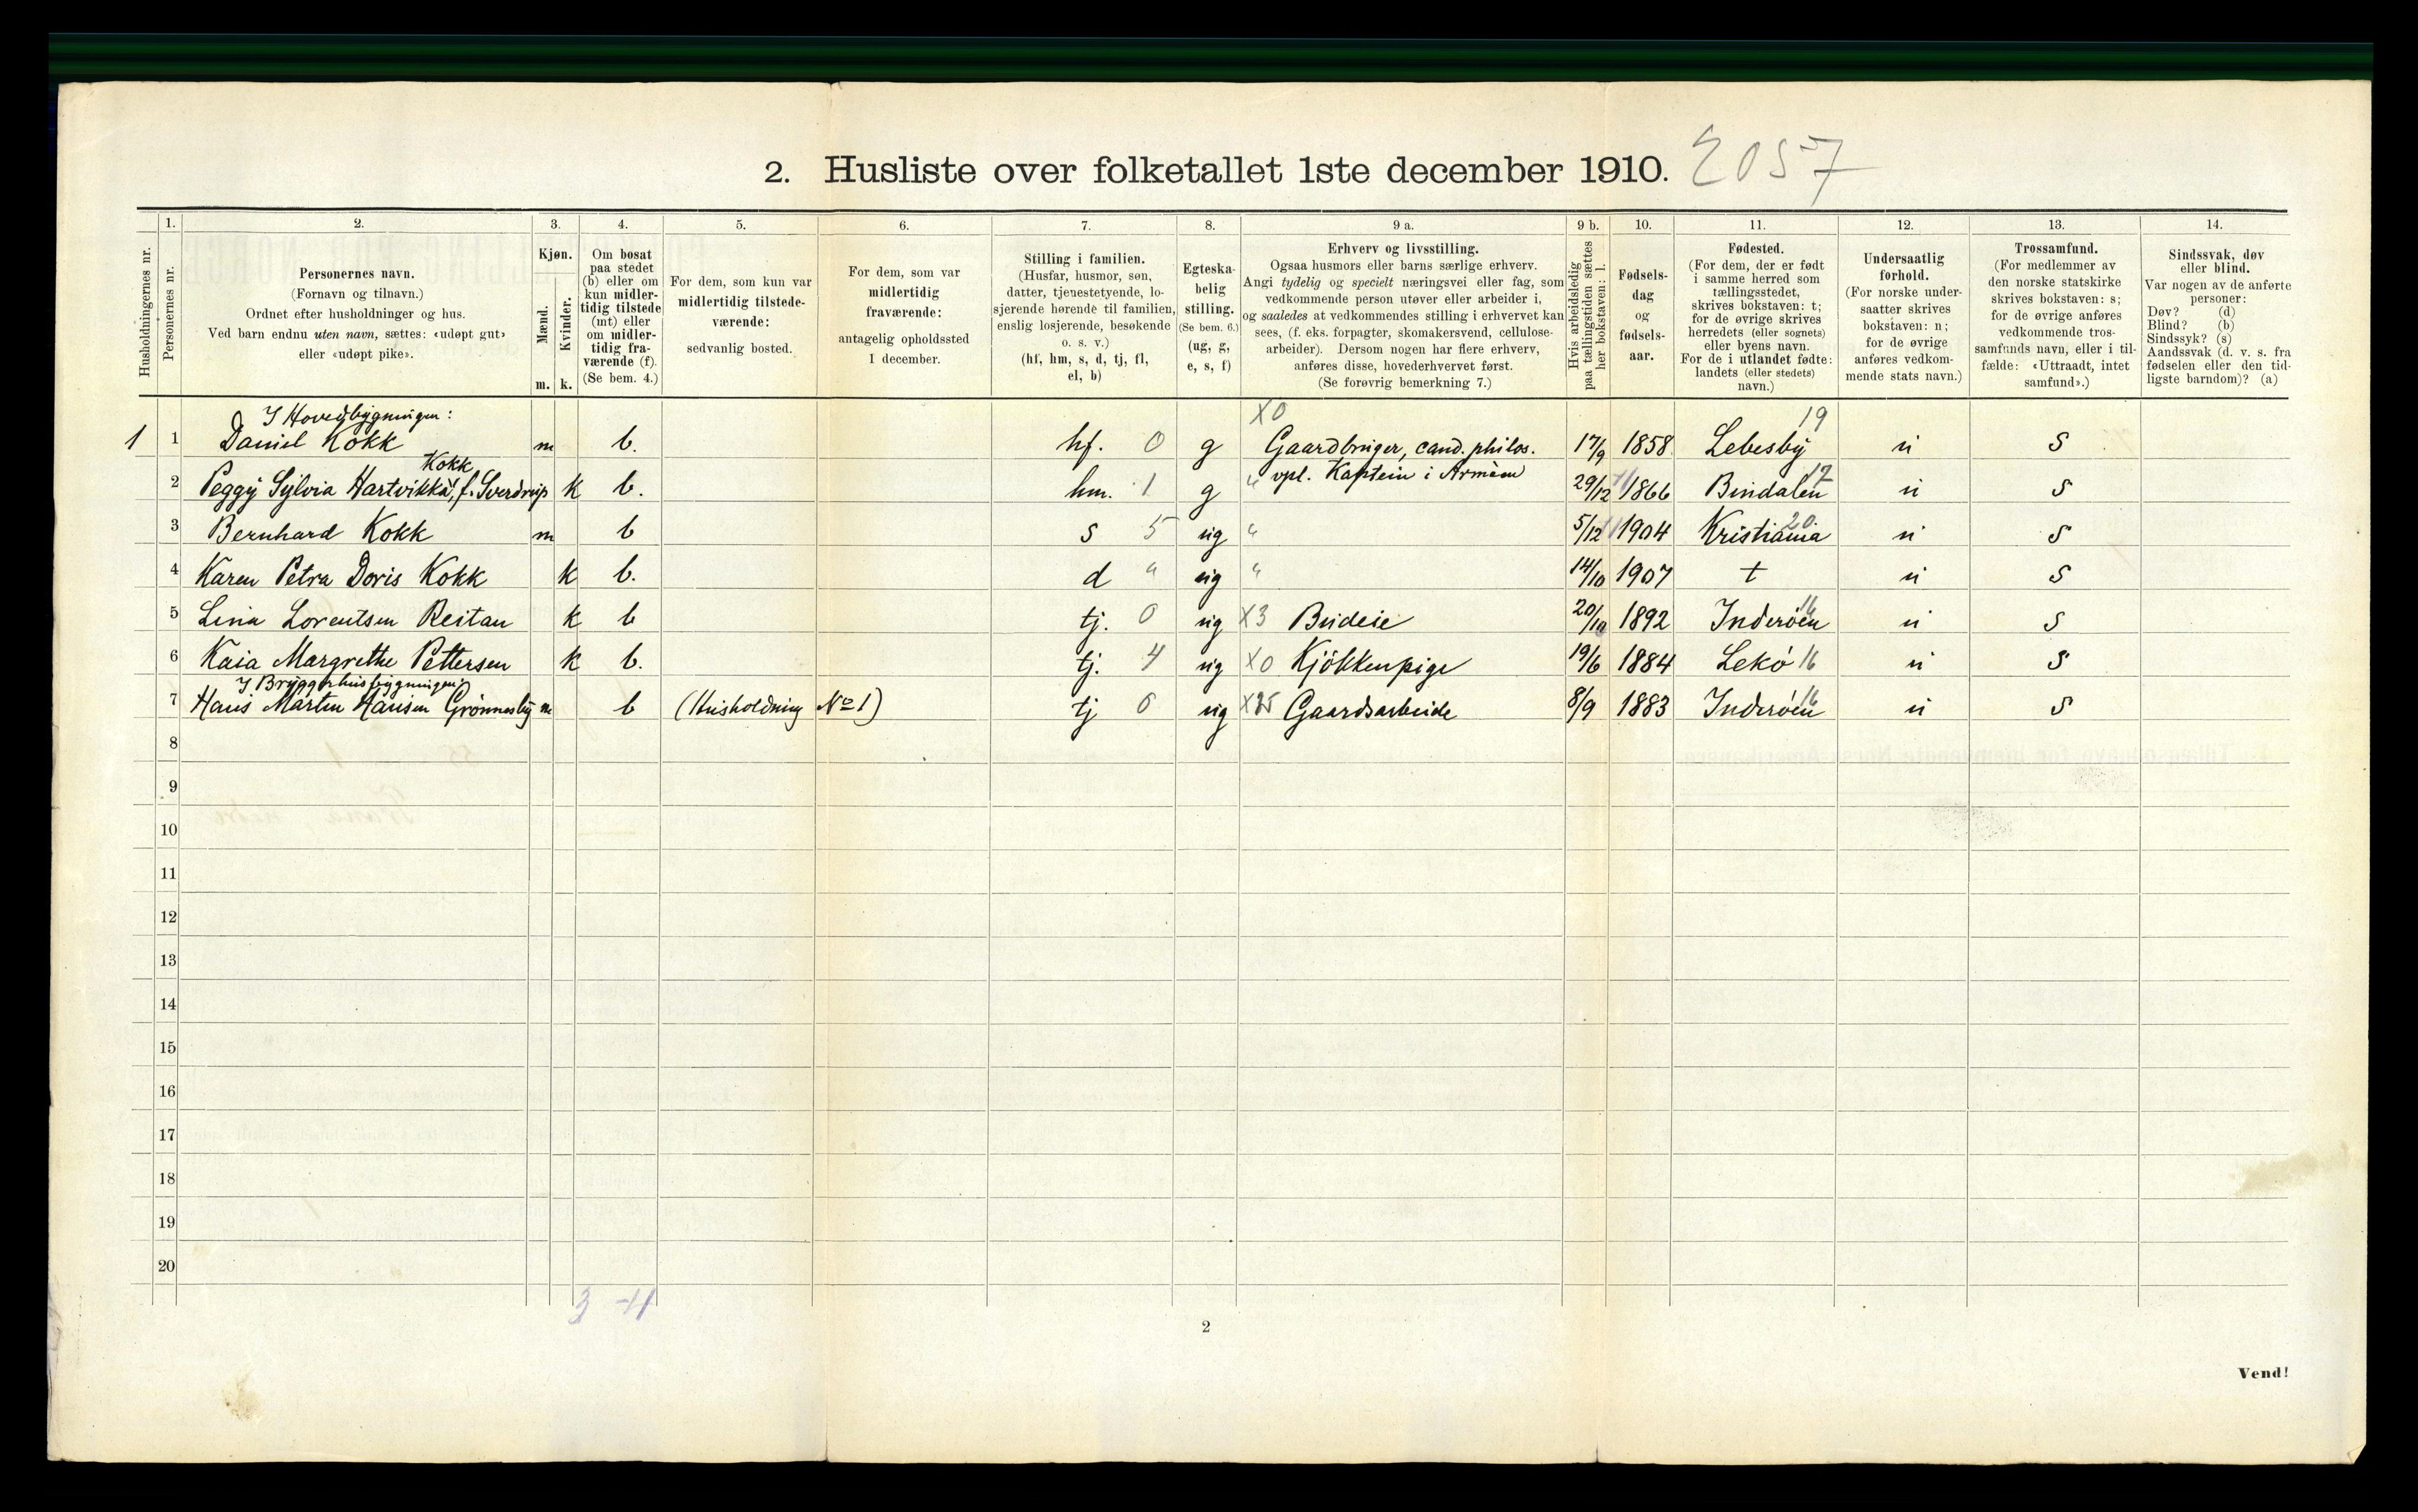 2. Husliste over folketallet 1ste december 1910. 2057
Husholdningernes nr.
1.
Personernes nr.
2.
Personernes navn.
(Fornavn og tilnavn.)
Ordnet efter husholdninger og hus.
Ved barn endnu uten navn, sættes: «udøpt gut»
eller «udøpt pike».
3.
Kjøn.
Mænd.
Kvinder.
m. k.
4.
Om bosat
paa stedet
(b) eller om
kun midler-
tidig tilstede
(mt) eller
om midler-
tidig fra-
værende (f).
(Se bem. 4.)
5.
For dem, som kun var
midlertidig tilstede-
værende:
sedvanlig bosted.
6.
For dem, som var
midlertidig
fraværende:
antagelig opholdssted
1 december.
7.
Stilling i familien.
(Husfar, husmor, søn,
datter, tjenestetyende, lo-
sjerende hørende til familien,
enslig losjerende, besøkende
o. s. v.)
(hf, hm, s, d, tj, fl,
el, b)
8.
Egteska-
belig
stilling.
(Se bem. 6.)
(ug, g,
e, s, f)
9 a.
Erhverv og livsstilling.
Ogsaa husmors eller barns særlige erhverv.
Angi tydelig og specielt næringsvei eller fag, som
vedkommende person utøver eller arbeider i,
og saaledes at vedkommendes stilling i erhvervet kan
sees, (f. eks. forpagter, skomakersvend, cellulose-
arbeider). Dersom nogen har flere erhverv,
anføres disse, hovederhvervet først.
(Se forøvrig bemerkning 7.)
9 b.
Hvis arbeidsledig
paa tællingstiden sættes
her bokstaven: l.
10.
Fødsels-
dag
og
fødsels-
aar.
11.
Fødested.
(For dem, der er født
i samme herred som
tællingsstedet,
skrives bokstaven: t;
for de øvrige skrives
herredets (eller sognets)
eller byens navn.
For de i utlandet fødte:
landets (eller stedets)
navn.)
12.
Undersaatlig
forhold.
(For norske under-
saatter skrives
bokstaven: n;
for de øvrige
anføres vedkom-
mende stats navn.)
13.
Trossamfund.
(For medlemmer av
den norske statskirke
skrives bokstaven: s;
for de øvrige anføres
vedkommende tros-
samfunds navn, eller i til-
fælde: «Uttraadt, intet
samfund».)
14.
Sindssvak, døv
eller blind.
Var nogen av de anførte
personer:
Døv? (d)
Blind? (b)
Sindssyk? (s)
Aandssvak (d. v. s. fra
fødselen eller den tid-
ligste barndom)? (a)
I Hovedbygningen: X0 19
1 1 Daniel Kokk m b. hf. 0 g Gaardbruger, cand. philos. 17/9 1858 Lebesby n s
Kokk vpl. Kaptein i Armèen 17
2 Peggy Sylvia Hartvikka, f. Sverdrup k b. hm. 1 g " 29/12 1866 Bindalen n s
3 Bernhard Kokk m b s 5 ug " 5/12 1904 Kristiania 20 n s
4 Karen Petra Doris Kokk k b. d " ug " 14/10 1907 t n s
5 Lina Lorentsen Reitan k b tj. 0 ug X3 Budeie 20/10 1892 Inderøen 16 n s
6 Kaia Margrethe Pettersen k b. tj. 4 ug X0 Kjökkenpige 19/6 1884 Lekö 16 n s
I Bryggerhusbygningen:
7 Hans Martin Hansen Grønnesby m b (Husholdning No 1) tj 6 ug X25 Gaardsarbeide 8/9 1883 Inderøen 16 n s
8
9
10
11
12
13
14
15
16
17
18
19
20
3 - 4
2
Vend!